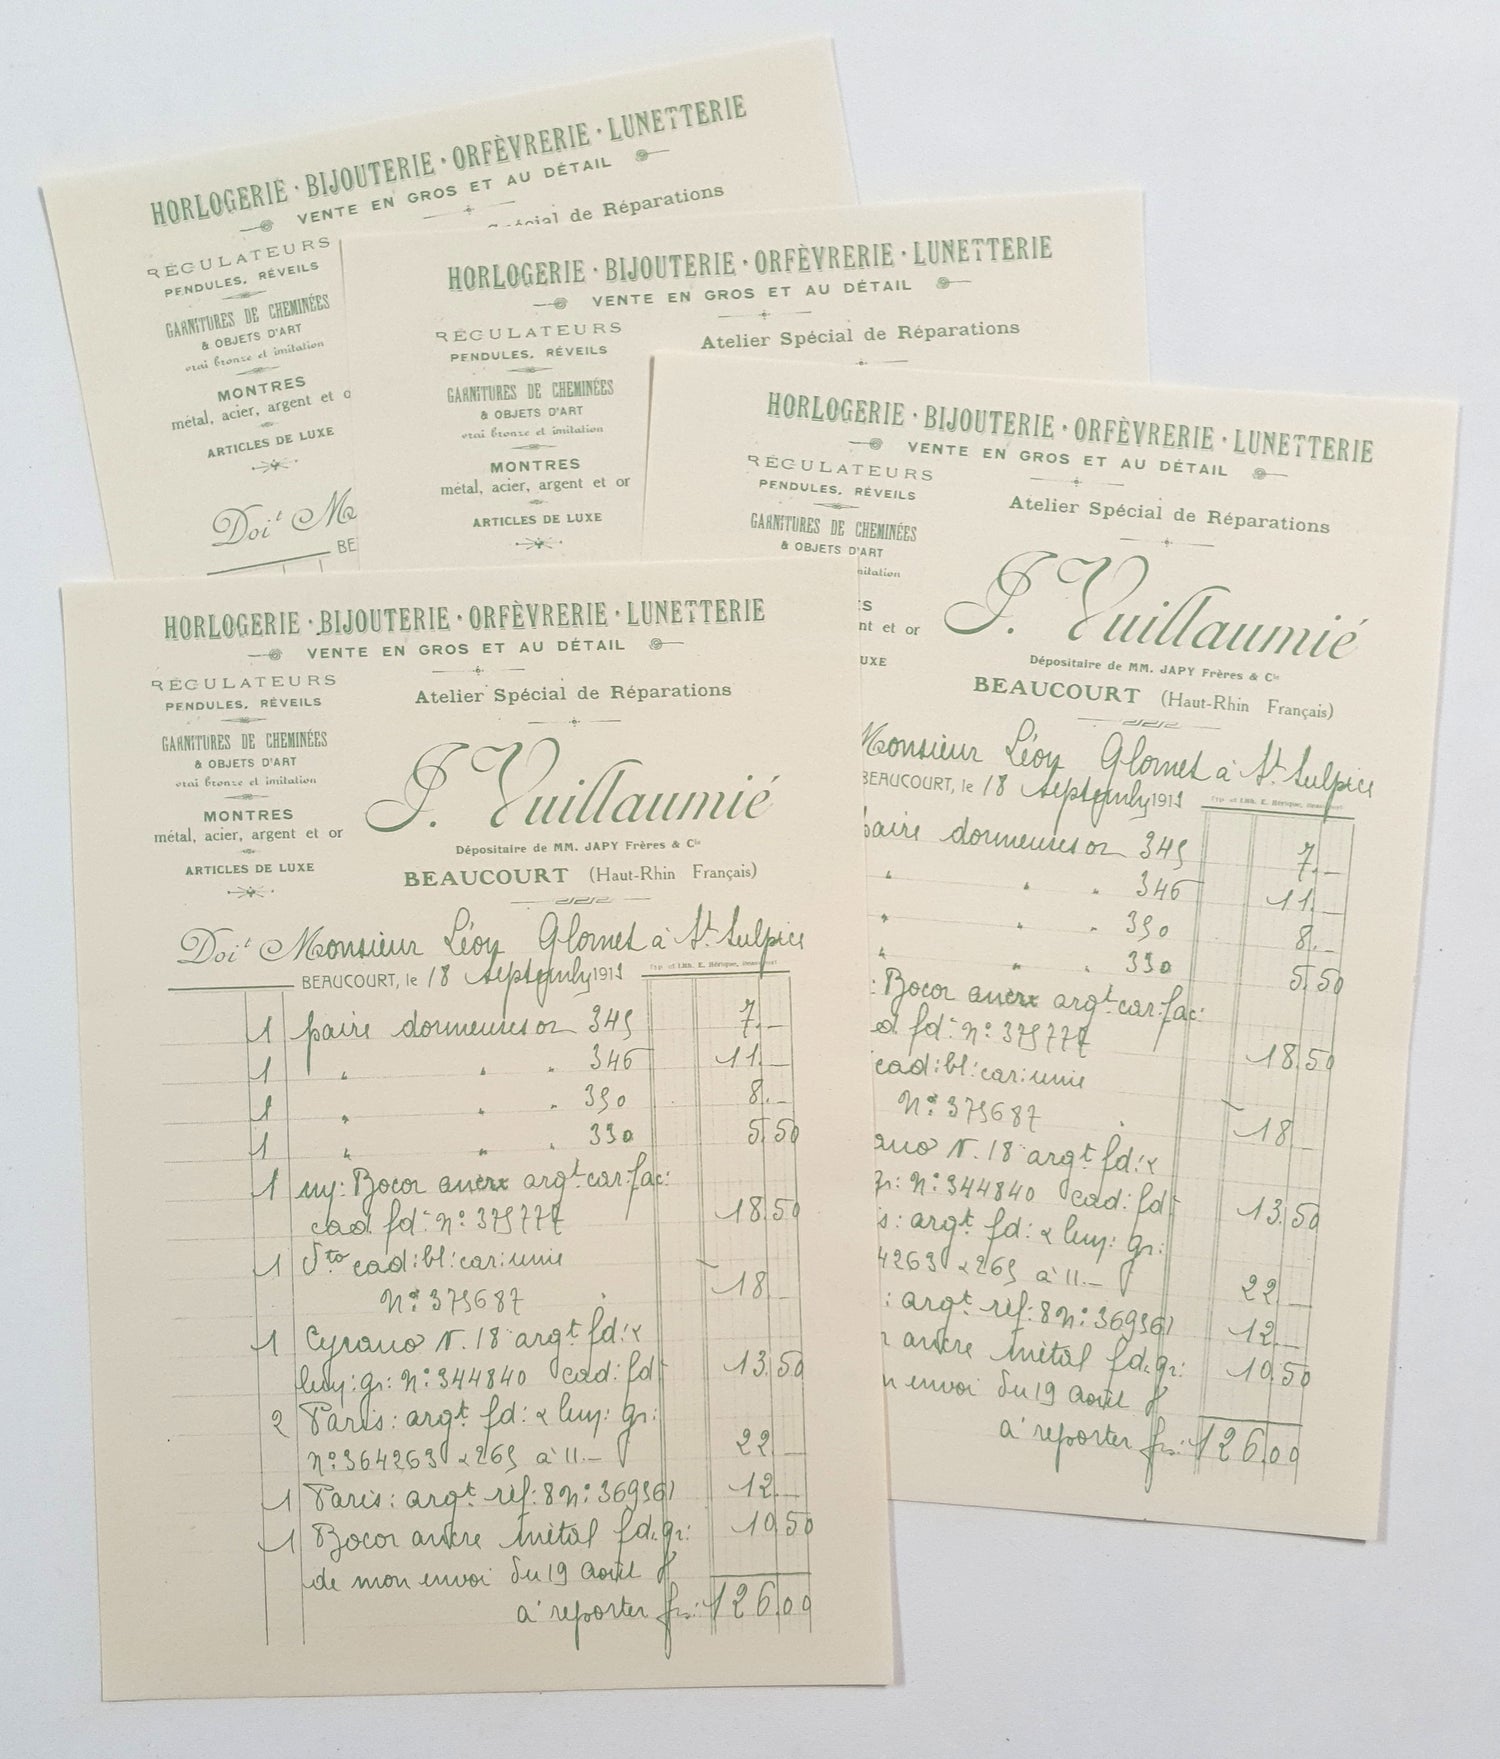 HORLOGERIE · BIJOUTERIE · ORFÈVRERIE · LUNETTERIE
VENTE EN GROS ET AU DÉTAIL
Spécial de Réparations
RÉGULATEURS
PENDULES, RÉVEILS
GARNITURES DE CHEMINÉES
& OBJETS D'ART
vrai bronze et imitation
MONTRES
métal, acier, argent et o
ARTICLES DE LUXE
Doit M
BE
HORLOGERIE · BIJOUTERIE · ORFÈVRERIE · LUNETTERIE
VENTE EN GROS ET AU DÉTAIL
RÉGULATEURS
PENDULES, RÉVEILS
Atelier Spécial de Réparations
GARNITURES DE CHEMINÉES
& OBJETS D'ART
vrai bronze et imitation
MONTRES
métal, acier, argent et or
ARTICLES DE LUXE
HORLOGERIE · BIJOUTERIE · ORFÈVRERIE · LUNETTERIE
VENTE EN GROS ET AU DÉTAIL
RÉGULATEURS
PENDULES, RÉVEILS
Atelier Spécial de Réparations
GARNITURES DE CHEMINÉES
& OBJETS D'ART
mitation
S
nt et or
UXE
J. Vuillaumié
Dépositaire de MM. JAPY Frères & Cie
BEAUCOURT (Haut-Rhin Français)
Monsieur Léon Glomet à St. Sulpice
BEAUCOURT, le 18 1911
paire dormeuses or 345 7.—
" " " 346 11.—
" " " 350 8.—
" " " 330 5.50
: Bocor ancre argt. car: fac:
d fd: No: 375777 18.50
cad: bl: car: unie
No: 375687 18.—
ano N. 18 argt. fd: &
gr: No: 344840 cad: fd: 13.50
s: argt. fd: & luy: gr:
4263 & 265 à 11.— 22.—
: argt. réf: 8 No: 369561 12.—
ancre métal fd. gr: 10.50
n envoi du 19 Août
à reporter frs: 126.00
HORLOGERIE · BIJOUTERIE · ORFÈVRERIE · LUNETTERIE
VENTE EN GROS ET AU DÉTAIL
RÉGULATEURS
PENDULES, RÉVEILS
Atelier Spécial de Réparations
GARNITURES DE CHEMINÉES
& OBJETS D'ART
vrai bronze et imitation
MONTRES
métal, acier, argent et or
ARTICLES DE LUXE
J. Vuillaumié
Dépositaire de MM. JAPY Frères & Cie
BEAUCOURT (Haut-Rhin Français)
Doit Monsieur Léon Glomet à St. Sulpice
BEAUCOURT, le 18 1911
1 paire dormeuses or 345 7.—
1 " " " 346 11.—
1 " " " 350 8.—
1 " " " 330 5.50
1 Bocor ancre argt. car: fac:
cad. fd: No: 375777 18.50
1 dto cad: bl: car: unie
No: 375687 18.—
1 Cyrano N. 18 argt. fd: &
luy: gr: No: 344840 cad: fd: 13.50
2 Paris: argt. fd: & luy: gr:
No: 364263 & 265 à 11.— 22.—
1 Paris: argt. réf: 8 No: 369561 12.—
1 Bocor ancre métal fd. gr: 10.50
de mon envoi du 19 Août
à reporter frs: 126.00